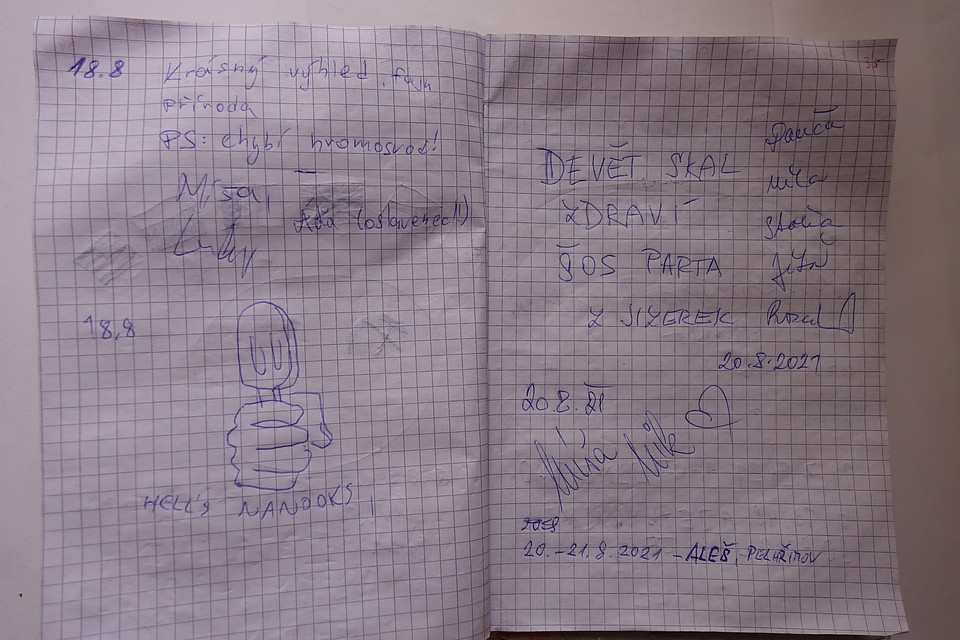 18.8 Krásný výhled, fajn
příroda
PS: chybí hromosvod!
Míša,
Áďa (oslavenec!!)
18.8
HELL'S NANOOKS
35
DEVĚT SKAL
ZDRAVÍ
ŠOS PARTA
Z JIZEREK
Míla
Jíťa
20.8.2021
20.8. 21
Míša
20.-21.8.2021 - ALEŠ, PELHŘIMOV